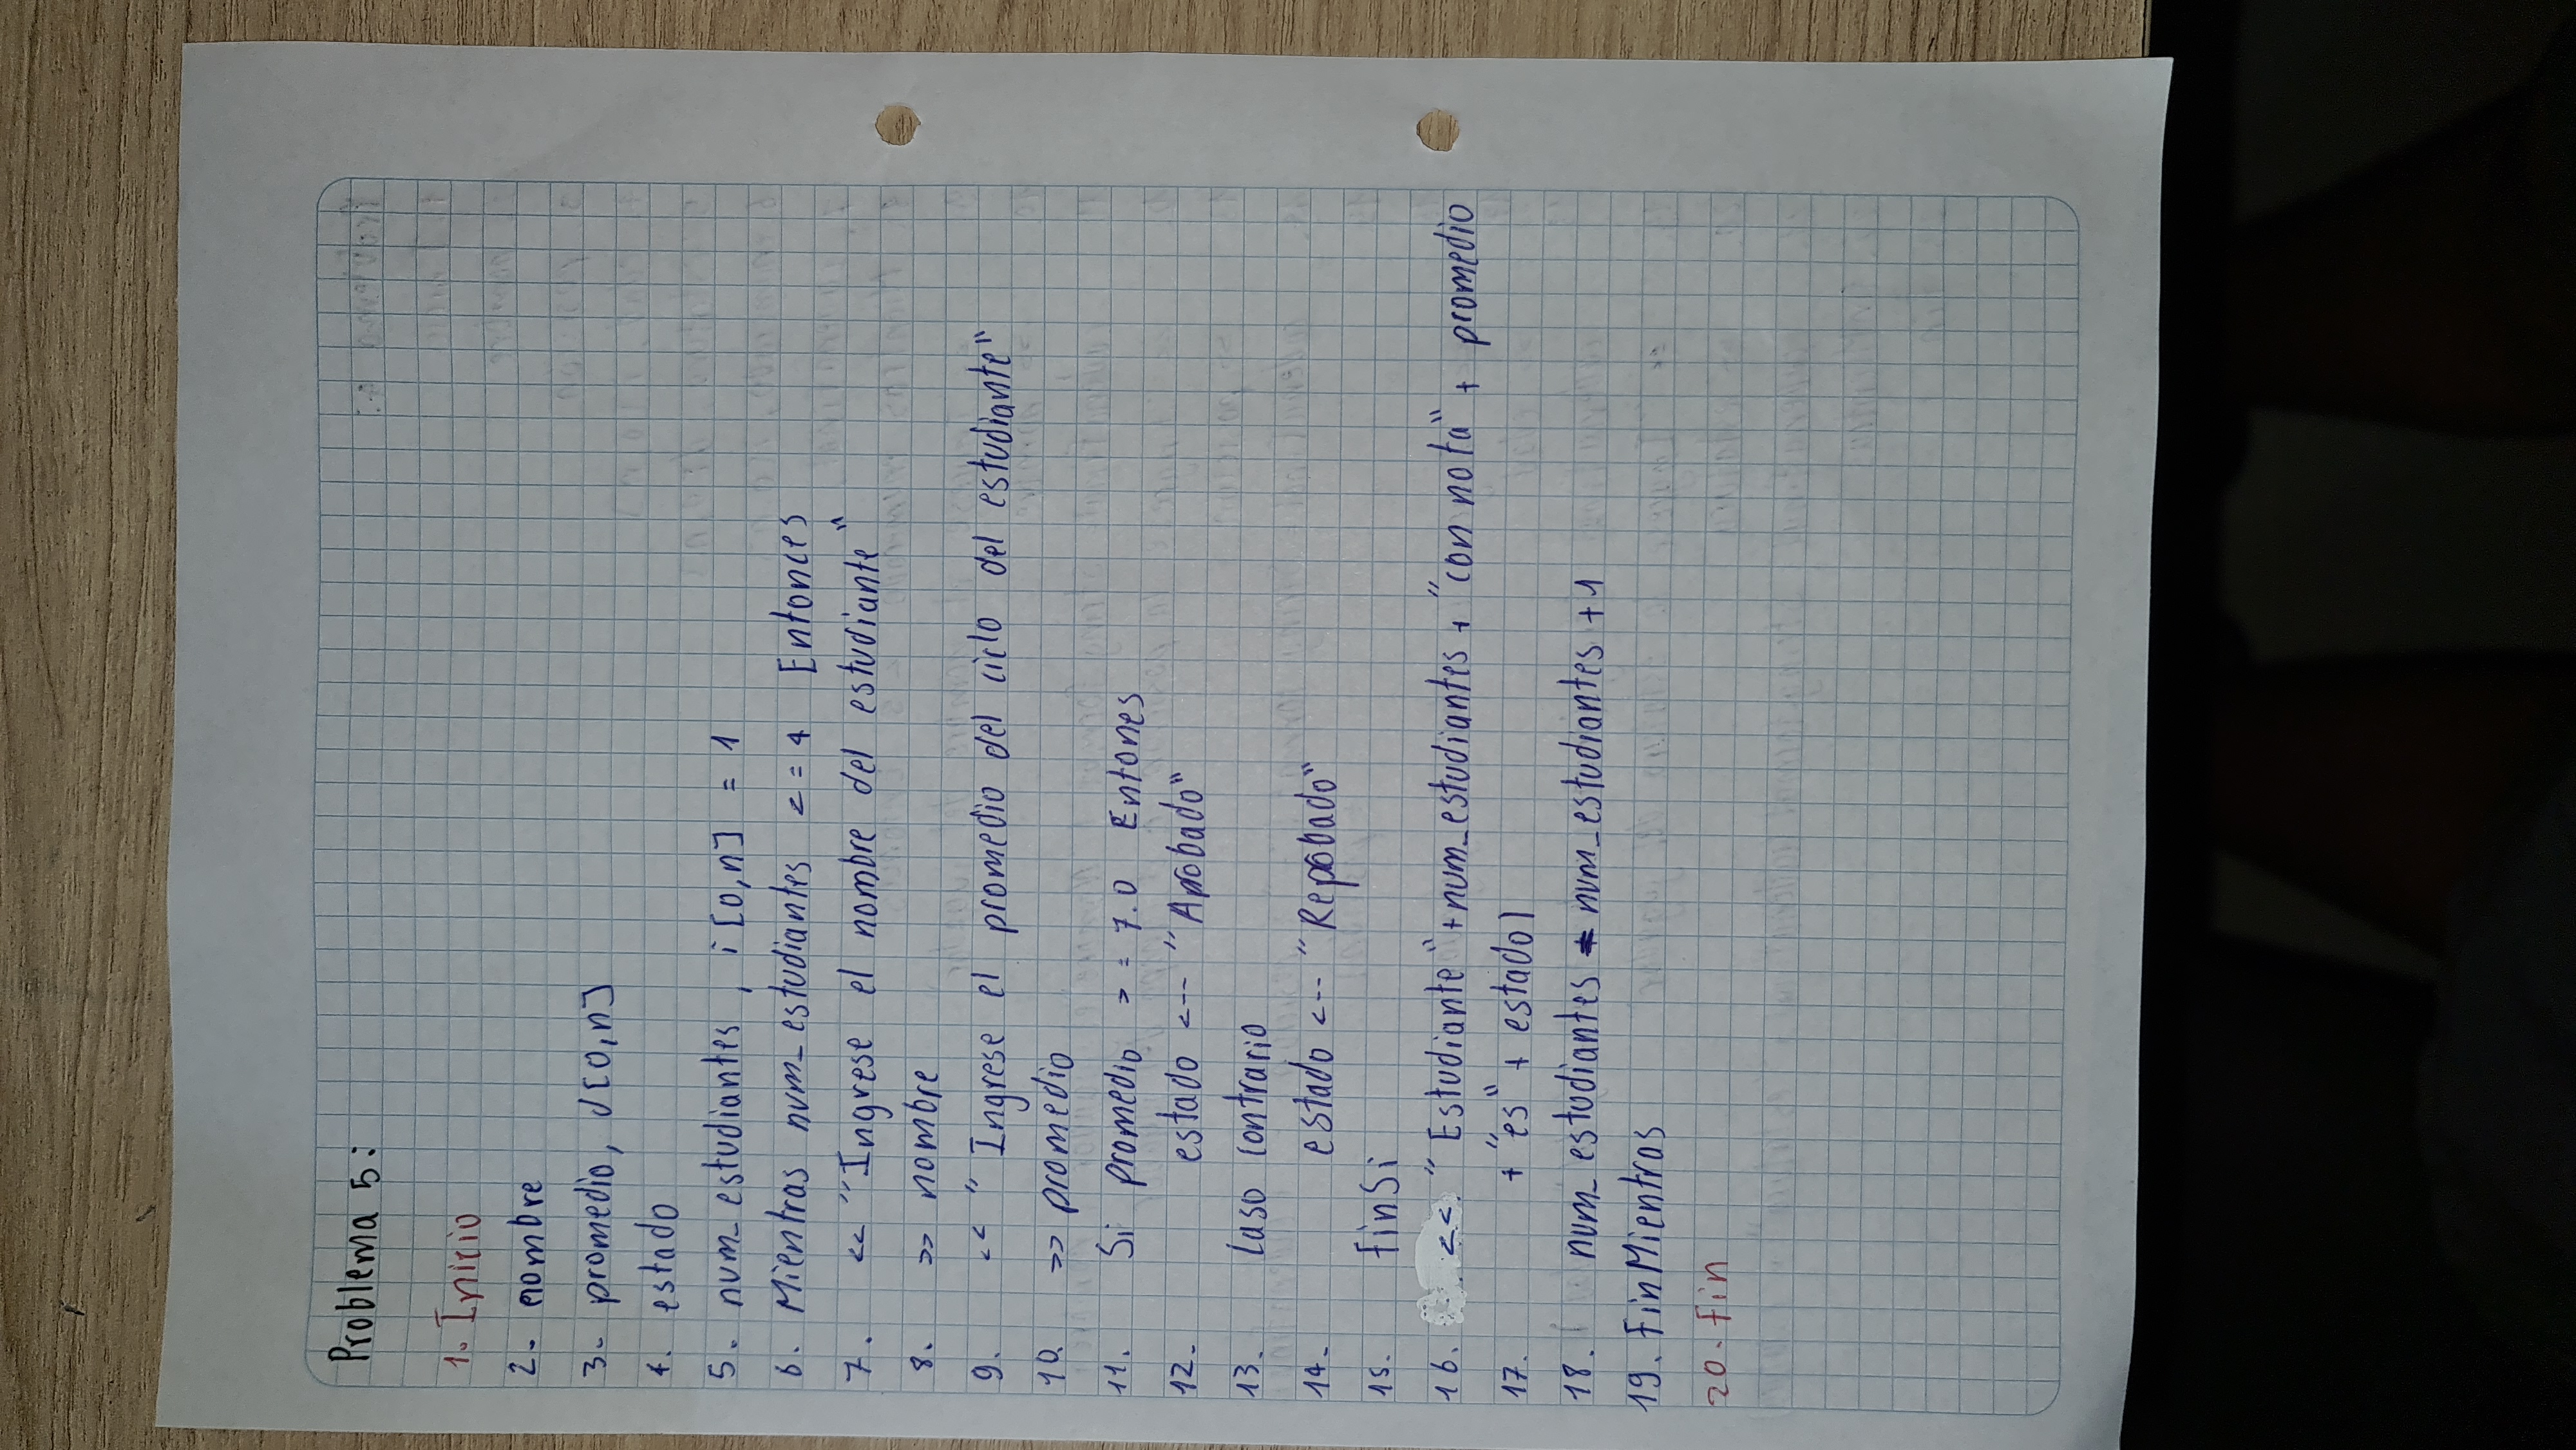 Problema 5:
1. Inicio
2. nombre
3. promedio, d[0,n]
4. estado
5. num_estudiantes, i[0,n] = 1
6. Mientras num_estudiantes <= 4 Entonces
7. << "Ingrese el nombre del estudiante"
8. >> nombre
9. << "Ingrese el promedio del ciclo del estudiante"
10. >> promedio
11. Si promedio >= 7.0 Entones
12. estado <-- "Aprobado"
13. Caso contrario
14. estado <-- "Repobado"
15. finSi
16. << "Estudiante" + num_estudiantes + "con nota" + promedio
17. + "es" + estado)
18. num_estudiantes = num_estudiantes + 1
19. FinMientras
20. Fin